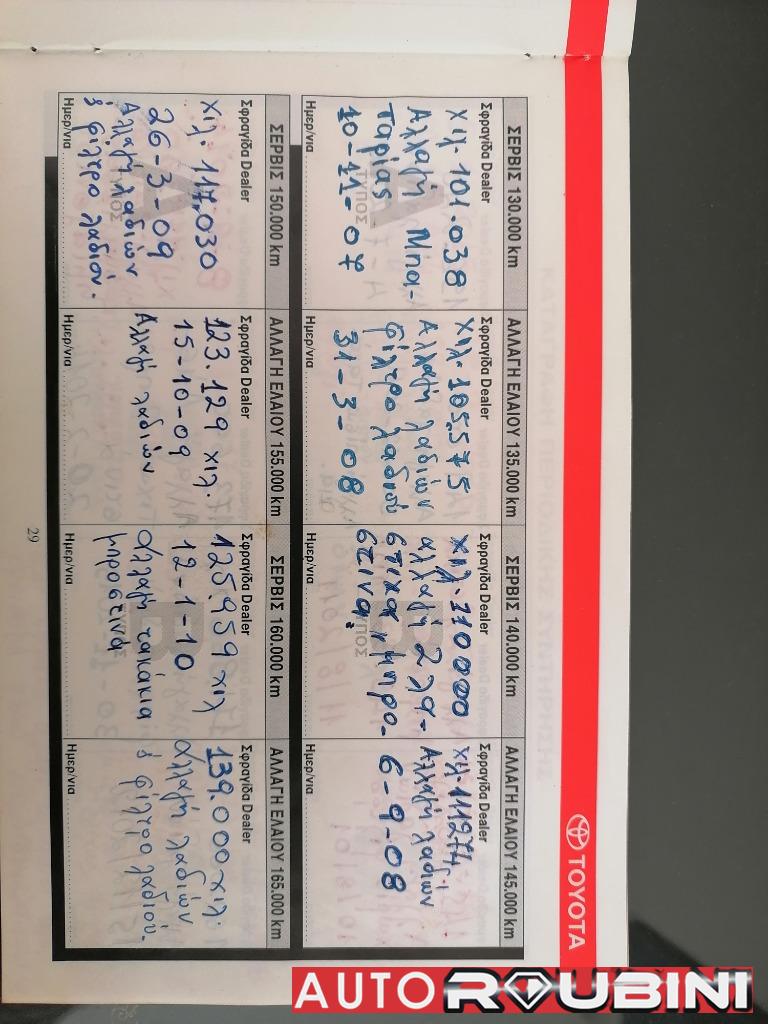 TOYOTA
ΣΕΡΒΙΣ 130.000 km
Σφραγίδα Dealer
Χιλ. 101.038
Αλλαγή Μπα-
ταρίας
10-11-07
Ημερ/νια
ΑΛΛΑΓΗ ΕΛΑΙΟΥ 135.000 km
Σφραγίδα Dealer
Χιλ. 105.575
Αλλαγή λαδιών
φίλτρο λαδιού
31-3-08
Ημερ/νια
ΣΕΡΒΙΣ 140.000 km
Σφραγίδα Dealer
Χιλ. 110000
αλλαγή 2 λα-
στιχα μπρο-
στινα
Ημερ/νια
ΑΛΛΑΓΗ ΕΛΑΙΟΥ 145.000 km
Σφραγίδα Dealer
Χιλ. 111274
Αλλαγή λαδιών
6-9-08
Ημερ/νια
ΣΕΡΒΙΣ 150.000 km
Σφραγίδα Dealer
Χιλ. 117.030
26-3-09
Αλλαγή λαδιών
& φιλτρο λαδιου.
Ημερ/νια
ΑΛΛΑΓΗ ΕΛΑΙΟΥ 155.000 km
Σφραγίδα Dealer
123.129 χιλ.
15-10-09
Αλλαγή λαδιών
Ημερ/νια
ΣΕΡΒΙΣ 160.000 km
Σφραγίδα Dealer
125.959 χιλ
12-1-10
αλλαγή τακάκια
μπροστινα
Ημερ/νια
ΑΛΛΑΓΗ ΕΛΑΙΟΥ 165.000 km
Σφραγίδα Dealer
139.000 χιλ.
αλλαγή λαδιών
& φίλτρο λαδιού.
Ημερ/νια
29
AUTO ROUBINI